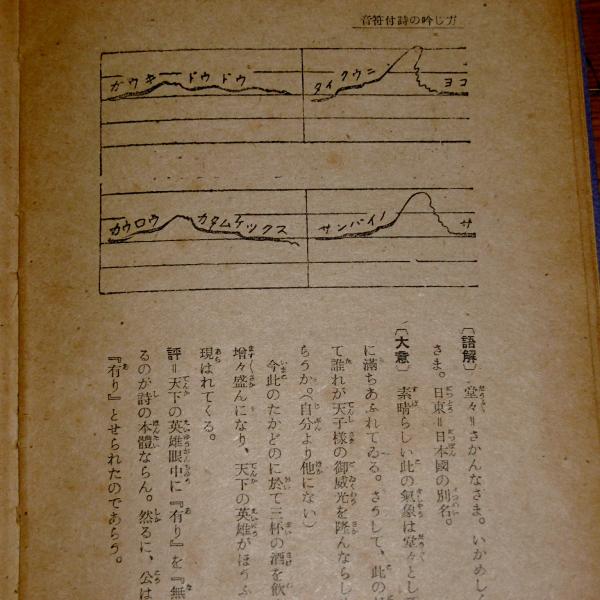 音符付詩の吟じガ
ガウキ ドウドウ
タイクウニ
ヨコ
カウロウ カタムケツクス
サンバイノ
サ
〔語解〕 堂々＝さかんなさま。いかめしく
さま。日東＝日本國の別名。
〔大意〕 素晴らしい此の氣象は堂々として
に滿ちあふれてゐる。さうして、此の
て誰れが天子様の御威光を隆んならし
らうか。（自分より他にない）
今此のたかどのに於て三杯の酒を飮
增々盛んになり、天下の英雄がほうふ
現はれてくる。
評＝天下の英雄眼中に『有り』を『無
るのが詩の本體ならん。然るに、公は
『有り』とせられたのであらう。